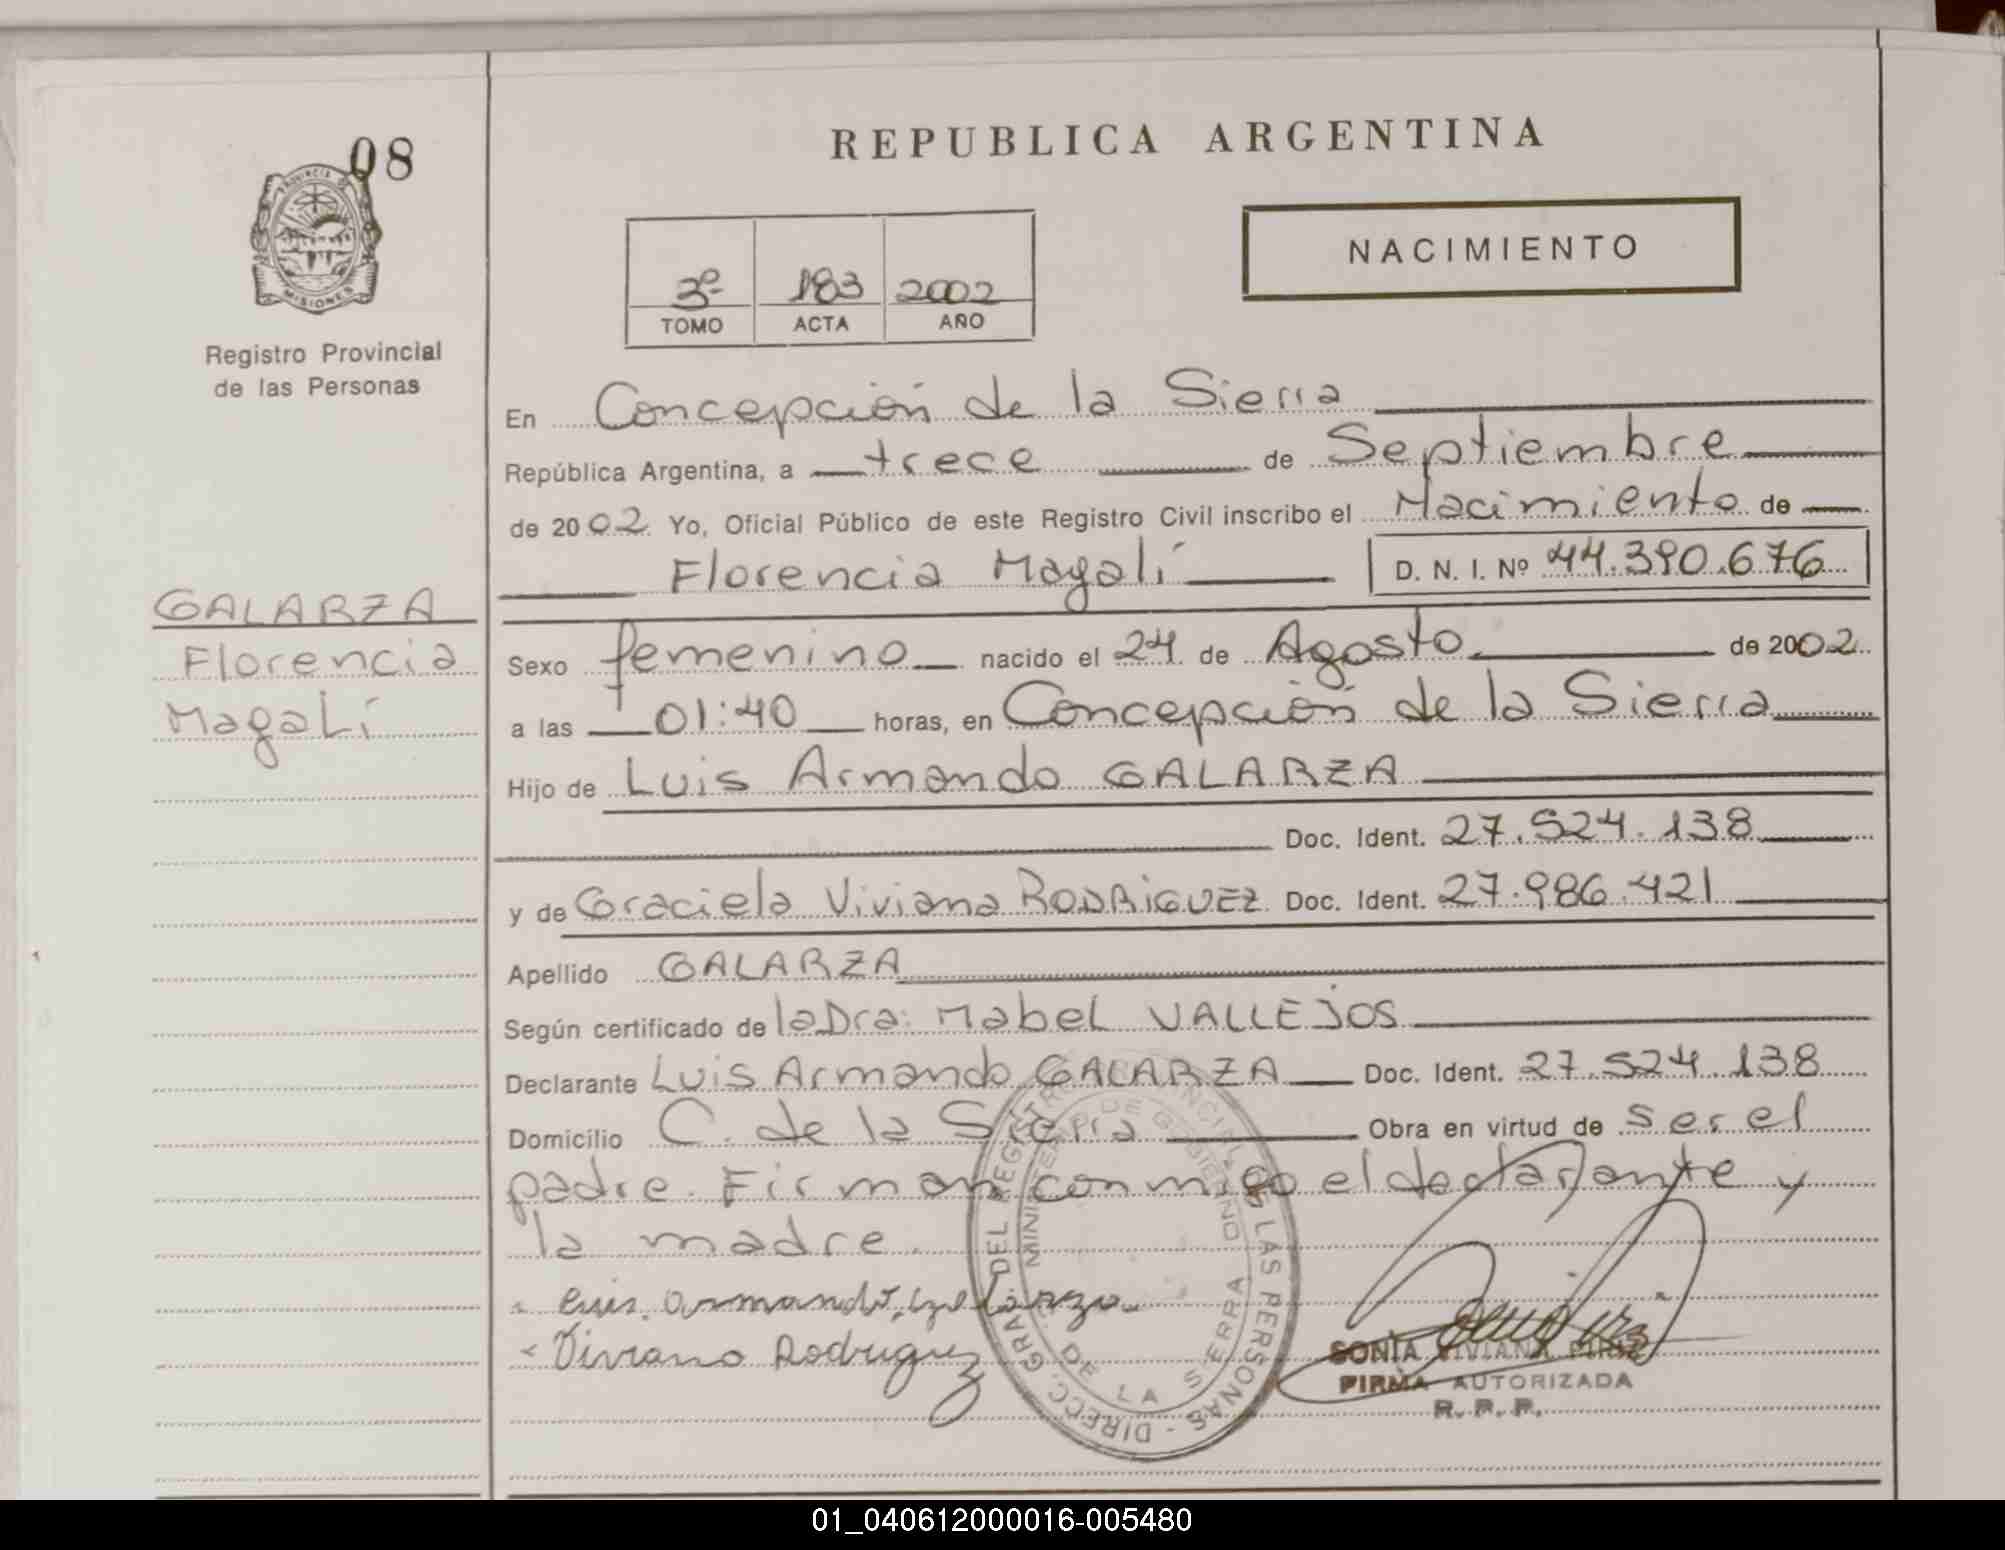 08
PROVINCIA DE
MISIONES
Registro Provincial
de las Personas
GALARZA
Florencia
Magalí
REPUBLICA ARGENTINA
NACIMIENTO
3º 183 2002
TOMO ACTA AÑO
En Concepción de la Sierra
República Argentina, a trece de Septiembre
de 2002 Yo, Oficial Público de este Registro Civil inscribo el Nacimiento de
Florencia Magalí D. N. I. Nº 44.390.676
Sexo femenino nacido el 24 de Agosto de 2002
a las 01:40 horas, en Concepción de la Sierra
Hijo de Luis Armando GALARZA
Doc. Ident. 27.524.138
y de Graciela Viviana RODRIGUEZ Doc. Ident. 27.986.421
Apellido GALARZA
Según certificado de la Dra: Mabel VALLEJOS
Declarante Luis Armando GALARZA Doc. Ident. 27.524.138
Domicilio C. de la Sierra Obra en virtud de ser el
padre. Firman conmigo el declarante y
la madre.
Luis armando galarza
Viviana Rodriguez
SONIA VIVIANA PIRIZ
FIRMA AUTORIZADA
R. P. P.
DIRECC. GRAL. DEL REGISTRO PROVINCIAL DE LAS PERSONAS
DE GOBIERNO
DE LA SIERRA
01_040612000016-005480